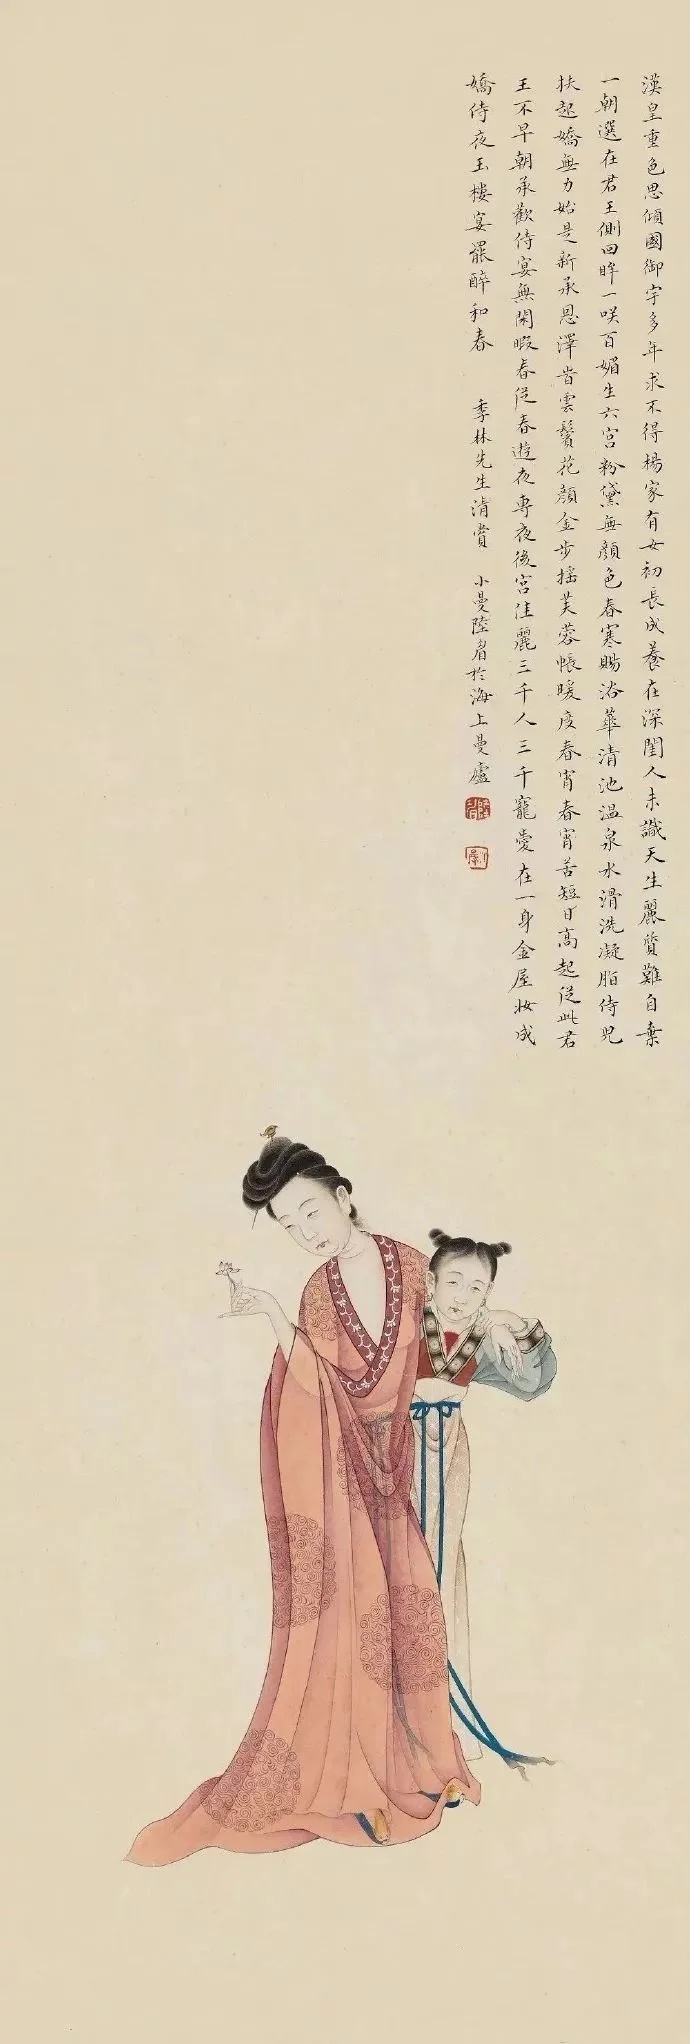 漢皇重色思傾國御宇多年求不得楊家有女初長成養在深閨人未識天生麗質難自棄
一朝選在君王側回眸一咲百媚生六宮粉黛無顏色春寒賜浴華清池温泉水滑洗凝脂侍兒
扶起嬌無力始是新承恩澤旹雲鬢花顏金步搖芙蓉帳暖度春宵春宵苦短日高起從此君
王不早朝承歡侍宴無閑暇春從春遊夜專夜後宮佳麗三千人三千寵愛在一身金屋妝成
嬌侍夜玉樓宴罷醉和春 季林先生清賞 小曼陸眉於海上曼廬